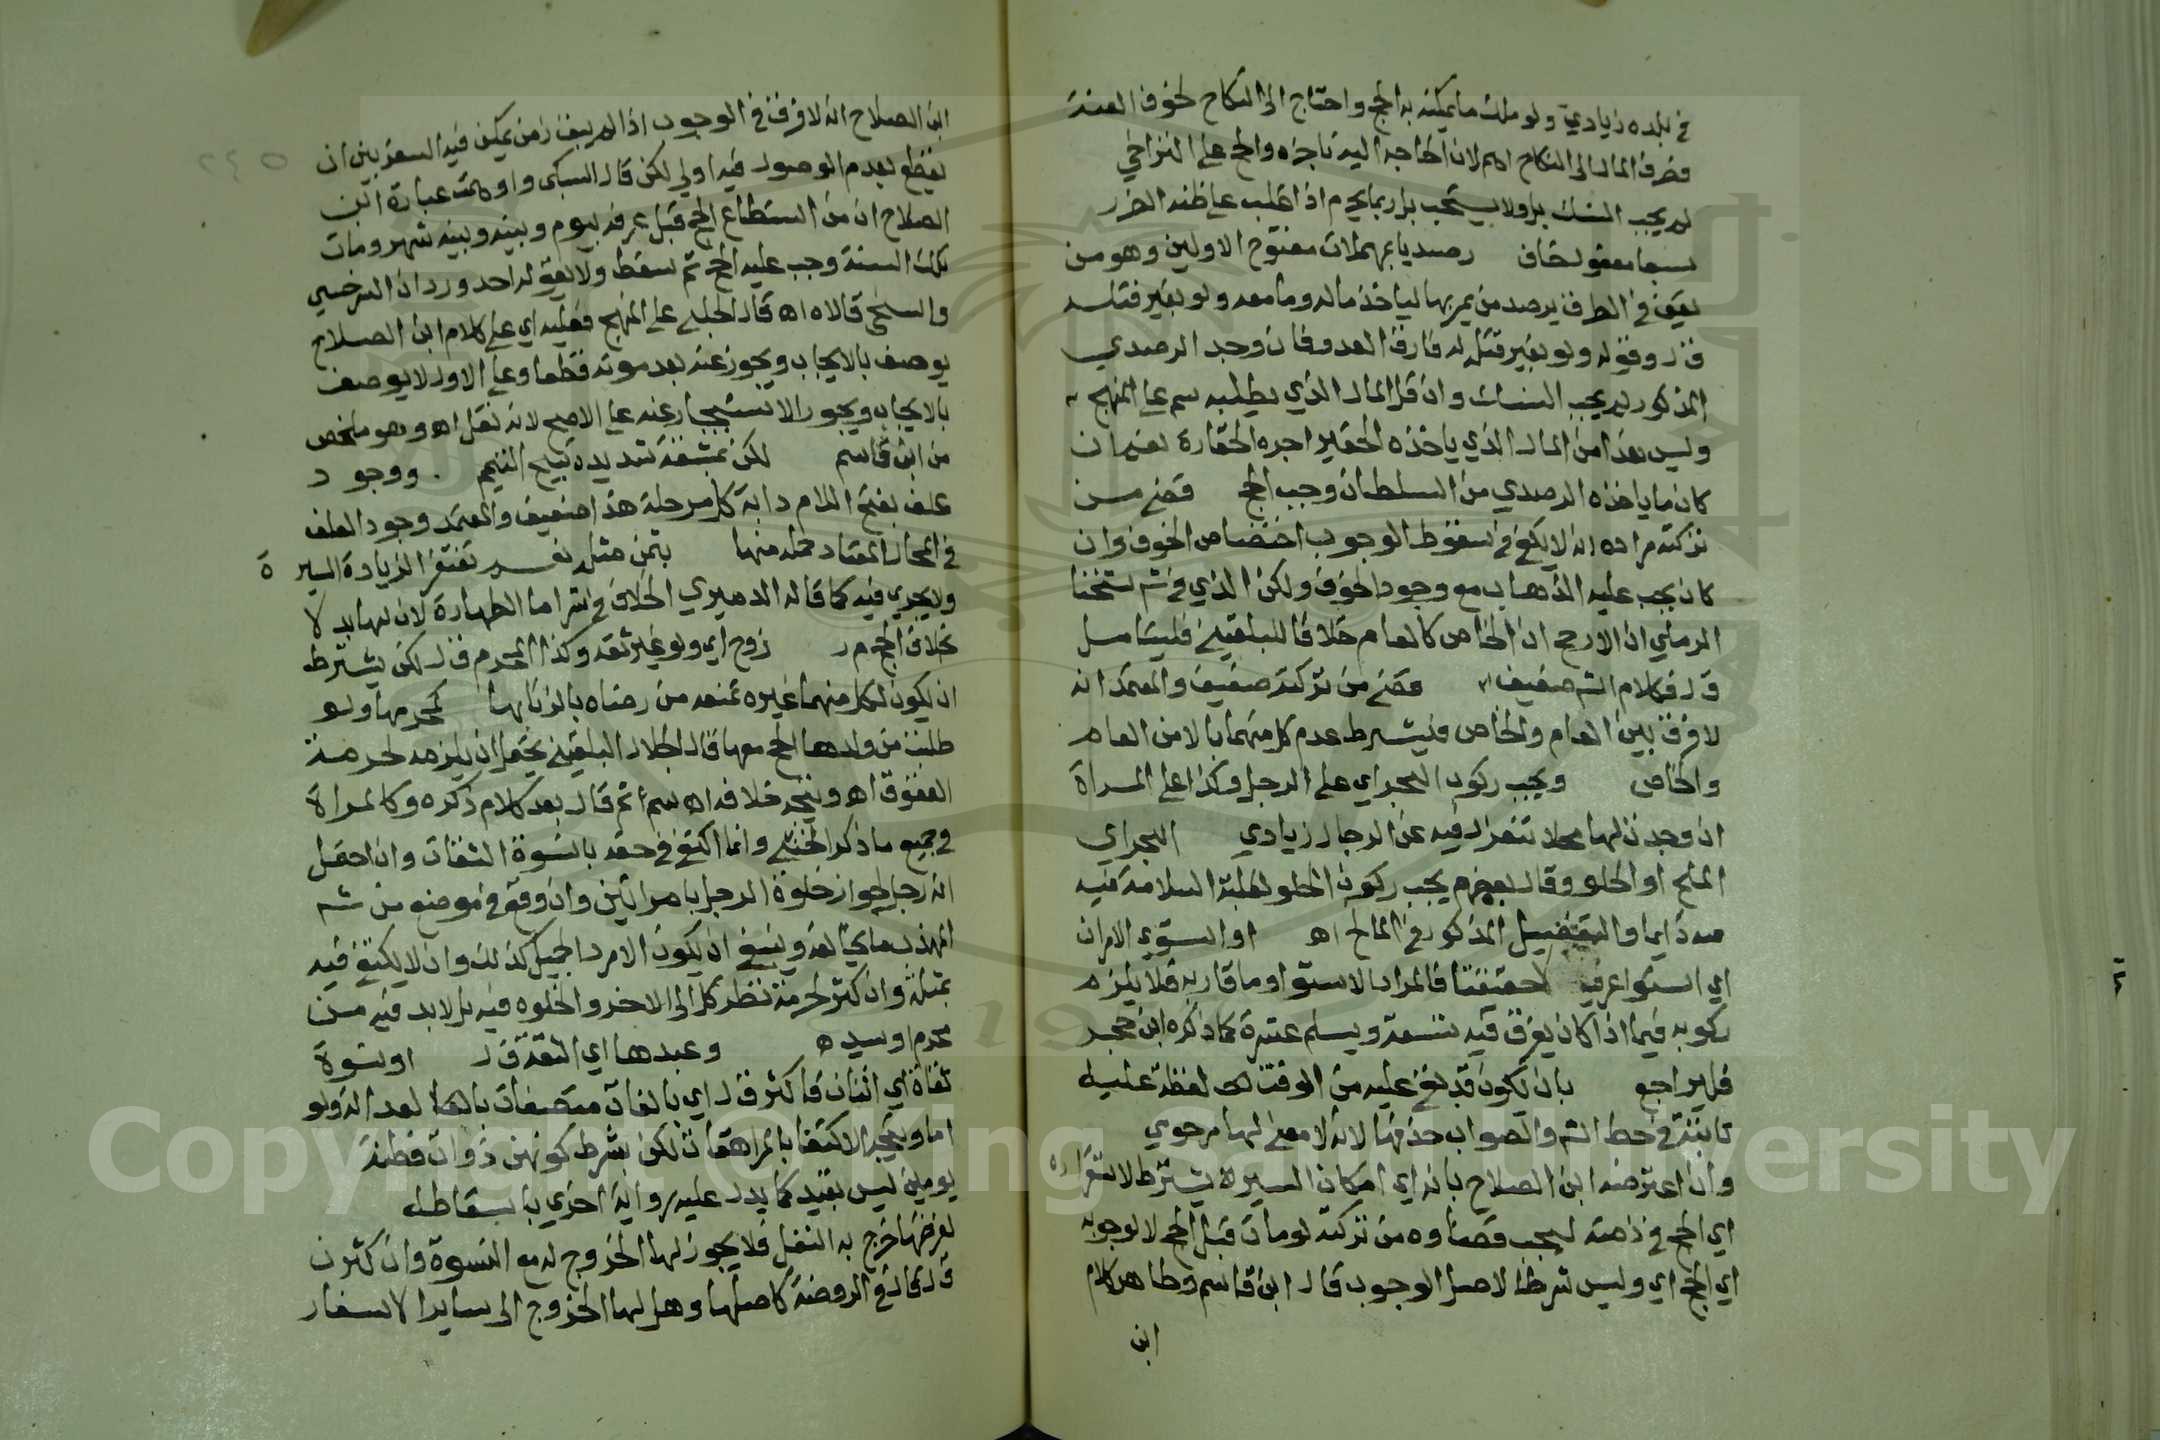 في بلده زيادي ولو ملك ما يمكنه به الحج واحتاج الى النكاح لخوف العنت
فصرف المال الى النكاح اهم لان الحاجة اليه ناجزه والحج على التراخي
لم يجب النسك بل ولا يستحب بل ربما يحرم اذا غلب على ظنه الضرر
سبعا معقول خاف رصديا بمهملات مفتوح الاولين وهو من
يقف في الطرف يرصد من يمر بها لياخذ ماله وما معه ولو بغير قتله
ق ل وقوله ولو بغير قتل له فارق العدو فان وجد الرصدي
المذكور لم يجب النسك وان قل المال الذي يطلبه سم على المنهج
وليس هذا من المال الذي ياخذه الخفير اجره الخفارة نعم ان
كان ما ياخذه الرصدي من السلطان وجب الحج قضى من
تركته مراده انه لا يكفي في سقوط الوجوب اختصاص الخوف وان
كان يجب عليه الذهاب مع وجود الخوف ولكن الذي في شم لشيخنا
الرملي ان الارجح ان الخاص كالعام خلافا للبلقيني فليتامل
ق ل فكلام الشم ضعيف قضى من تركته ضعيف والمعتمد انه
لا فرق بين العام والخاص فيشترط عدم كل منهما بالامن العام
والخاص ويجب ركوب البحر اي على الرجل وكذا على المراة
ان وجدت لها محلا تنعزل فيه عن الرجال زيادي البحر اي
الملح او الحلو وقال بعضهم يجب ركوب الحلو لغلبة السلامة فيه
والتفضيل المذكور في المالح اه او استوى الامران
اي استوا عرفيا لا حقيقيا فالمراد الاستوا وما قاربه فلا يلزمه
ركوبه فيما اذا كان يغرق فيه تسعة ويسلم عشرة كما ذكره ابن حجر
فليراجع بان يكون قد بقي عليه من الوقت لفظة عليه
ثابتة في خط الشم والصواب حذفها لانه لا معنى لها مرحومي
وان اعترضه ابن الصلاح بانه اي امكان السير لا يشترط لاستقراره
اي الحج في ذمته ليجب قضاوه من تركته لو مات قبل الحج لا لوجوبه
اي الحج اي وليس شرطا لاصل الوجوب قال ابن قاسم وظاهر كلام
ابن
ابن الصلاح انه لا فرق في الوجوب اذا لم يبق زمن يمكن فيه السفر بين ان
يقطع بعدم الوصول فيه اولى لكن قال السبكي واوهمت عبارة ابن
الصلاح ان من استطاع الحج قبل عرفه بيوم وبينه وبينه شهر ومات
تلك السنة وجب عليه الحج ثم سقط ولا يقوله احد ورد ان السرخسي
والسنجي قالاه اه قال الحلبي على المنهج فعليه اي على كلام ابن الصلاح
يوصف بالايجاب ويجوز عنه بعد موته قطعا وعلى الاول لا يوصف
بالايجاب ويجوز الاستيجار عنه على الاصح لانه نفل اه وهو ملخص
من ابن قاسم لكن بمشقة شديدة تبيح التيمم . ووجود
علف بفتح اللام دابة كل مرحلة هذا ضعيف والمعتمد وجود العلف
في المحال المعتاد حمله منها بثمن مثل نعم تغتفر الزيادة اليسيرة
ولا يجري فيه كما قاله الدميري الخلاف في شرا ما الطهارة لان لها بدلا
بخلاف الحج م ر زوج اي ولو غير ثقة وكذا المحرم ق ل لكن يشترط
ان يكون لكل منهما غيره تمنعه من رضاه بالزنا بها كمحرمها ولو
طلبت من ولدها الحج معها قال الجلال البلقيني يحتمل ان يلزمه لحرمة
العقوق اه ويتجه خلافه اه سم ثم قال بعد كلام ذكره وكالمراة
في جميع ما ذكر الخنثى وانما اكتفى في حقه بالنسوة الثقات وان احتمل
انه رجل لجواز خلوة الرجل بامراتين وان وقع في موضع من شم
المهذب ما يخالفه وينبغي ان يكون الامرد الجميل كذلك وان لا يكتفى فيه
بمثله وان كثر لحرمة نظر كل الى الاخر والخلوه فيه بل لا بد فيه من
محرم او سيده وعبدها اي الثقة ق ل او نسوة
ثقات اي اثنان فاكثر ق ل اي بالغات متصفات بالعدالة ولو
اما ويتجه الاكتفا بالمراهقات لكن بشرط كونهن ذوات فطنة
يومين ليس بقيد كما يدل عليه رواية اخرى باسقاطه
لفرضها خرج به النفل فلا يجوز لها الخروج له مع النسوة وان كثرن
ق ل قال في الروضة كاصلها وهل لها الخروج الى ساير الاسفار